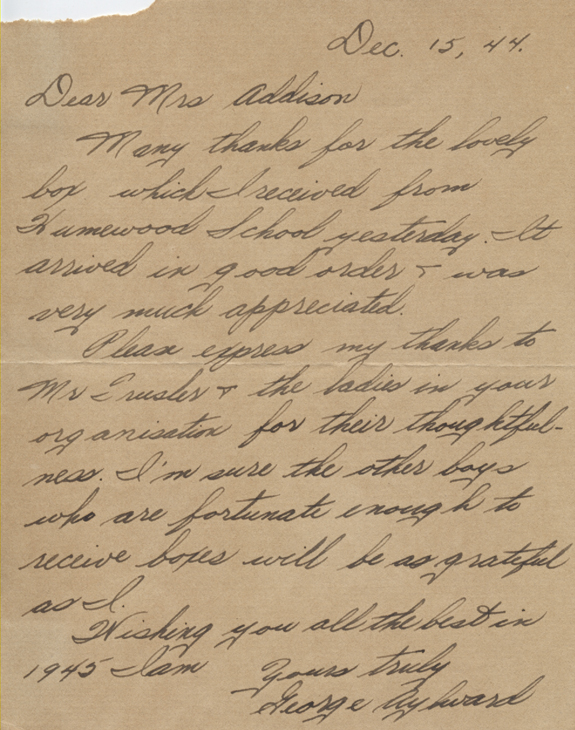 Dec. 15, 44.
Dear Mrs Addison
Many thanks for the lovely
box which I received from
Humewood School yesterday. It
arrived in good order & was
very much appreciated.
Please express my thanks to
Mr & the ladies in your
organisation for their thoughtful-
ness. I'm sure the other boys
who are fortunate enough to
receive boxes will be as grateful
as I.
Wishing you all the best in
1945 I am Yours truly
George Aylward